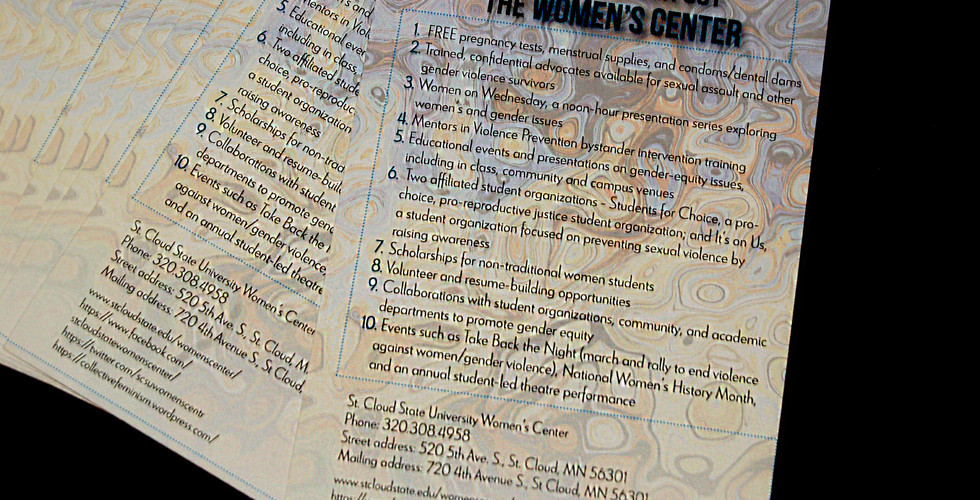 THE WOMEN'S CENTER
1. FREE pregnancy tests, menstrual supplies, and condoms/dental dams
2. Trained, confidential advocates available for sexual assault and other
gender violence survivors
3. Women on Wednesday, a noon-hour presentation series exploring
women's and gender issues
4. Mentors in Violence Prevention bystander intervention training
5. Educational events and presentations on gender-equity issues,
including in class, community and campus venues
6. Two affiliated student organizations - Students for Choice, a pro-
choice, pro-reproductive justice student organization; and It's on Us,
a student organization focused on preventing sexual violence by
raising awareness
7. Scholarships for non-traditional women students
8. Volunteer and resume-building opportunities
9. Collaborations with student organizations, community, and academic
departments to promote gender equity
10. Events such as Take Back the Night (march and rally to end violence
against women/gender violence), National Women's History Month,
and an annual student-led theatre performance
St. Cloud State University Women's Center
Phone: 320.308.4958
Street address: 520 5th Ave. S., St. Cloud, MN 56301
Mailing address: 720 4th Avenue S., St Cloud, MN 56301
5. Educational
including in class,
6. Two affiliated
choice,
a student organization
raising awareness
7. Scholarships for
8. Volunteer and
9. Collaborations with student
departments to promote
10. Events such as Take Back the
against women/gender violence,
and an annual student-led theatre
St. Cloud State University Women's Center
Phone: 320.308.4958
Street address: 520 5th Ave. S., St. Cloud, M
Mailing address: 720 4th Avenue S., St Cloud,
www.stcloudstate.edu/womenscenter/
https://www.facebook.com/
stcloudstatewomenscenter/
https://twitter.com/scsuwomenscentr
https://collectivefeminism.wordpress.com/